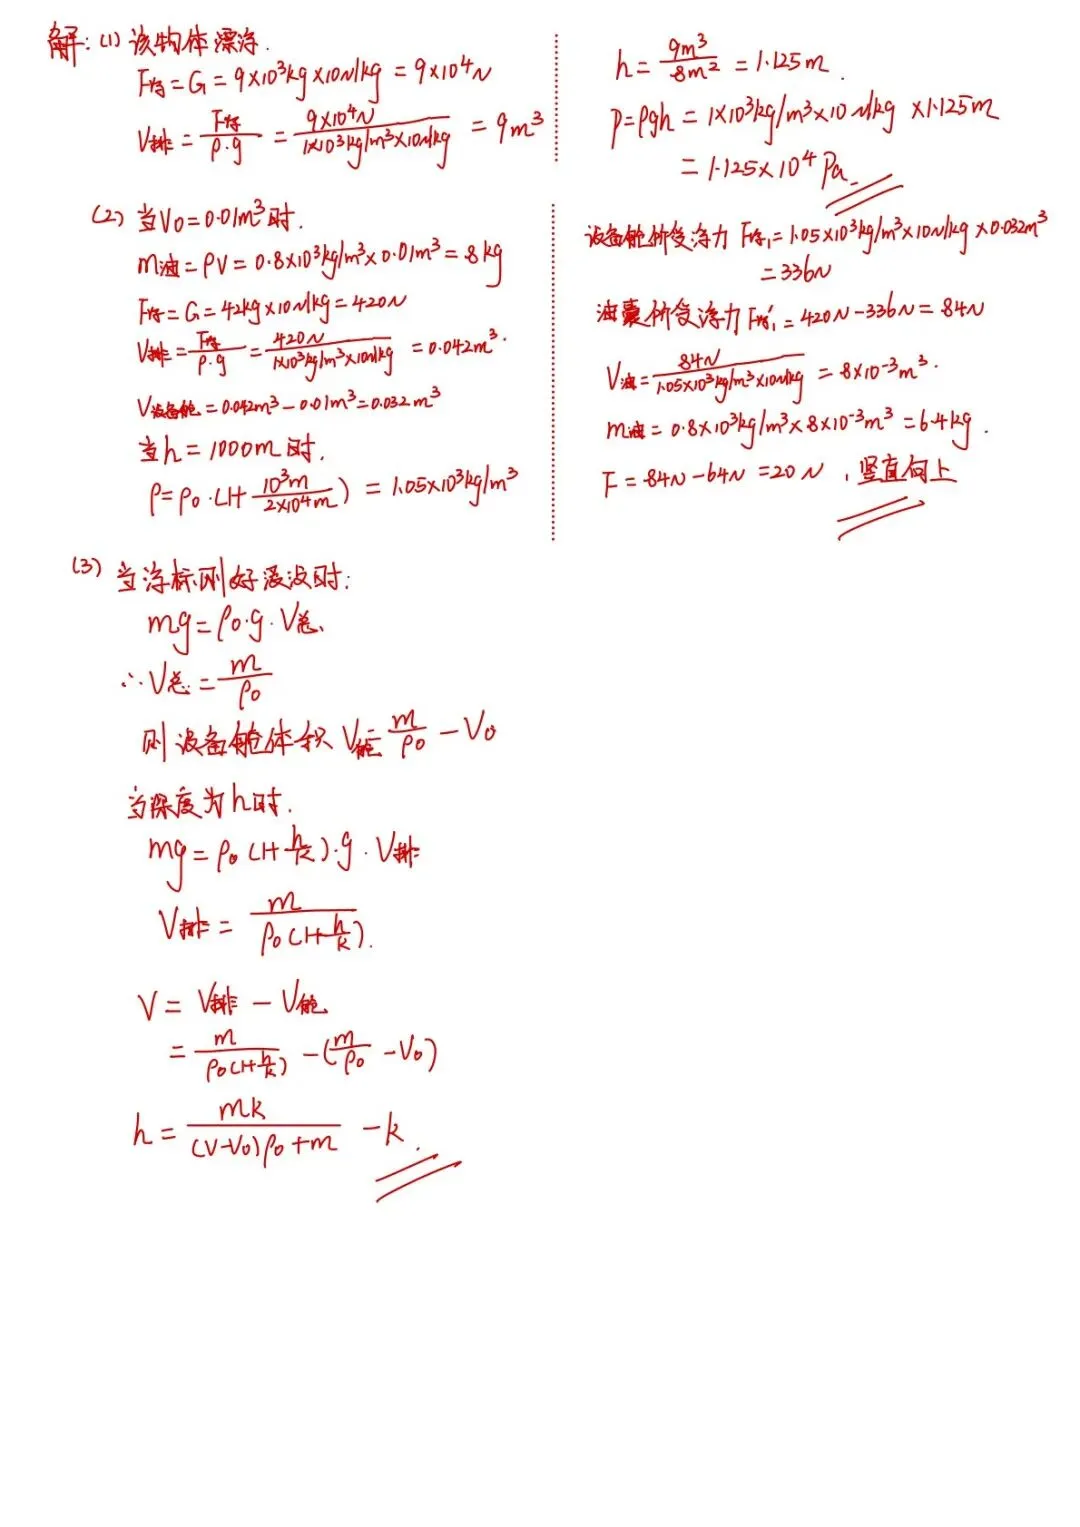 解:(1) 该物体漂浮.
F浮=G=9×10³kg×10N/kg=9×10⁴N
V排=F浮/ρ·g=9×10⁴N/1×10³kg/m³×10N/kg=9m³
h=9m³/8m²=1.125m.
P=ρgh=1×10³kg/m³×10N/kg×1.125m
=1.125×10⁴Pa.
(2) 当V0=0.01m³时.
m油=ρV=0.8×10³kg/m³×0.01m³=8kg
F浮=G=42kg×10N/kg=420N
V排=F浮/ρ·g=420N/1×10³kg/m³×10N/kg=0.042m³.
V设备舱=0.042m³-0.01m³=0.032m³
当h=1000m时,
ρ=ρ0·(1+10³m/2×10⁴m)=1.05×10³kg/m³
设备舱所受浮力 F浮1=1.05×10³kg/m³×10N/kg×0.032m³
=336N
油囊所受浮力F浮1'=420N-336N=84N
V油=84N/1.05×10³kg/m³×10N/kg=8×10⁻³m³.
m油=0.8×10³kg/m³×8×10⁻³m³=6.4kg.
F=84N-64N=20N,竖直向上
(3) 当浮标刚好浸没时:
mg=ρ0·g·V总
∴V总=m/ρ0
则设备舱体积 V舱=m/ρ0-V0
当深度为h时.
mg=ρ0(1+h/k)·g·V排
V排=m/ρ0(1+h/k).
V=V排-V舱
=m/ρ0(1+h/k)-(m/ρ0-V0)
h=mk/(V-V0)ρ0+m-k.